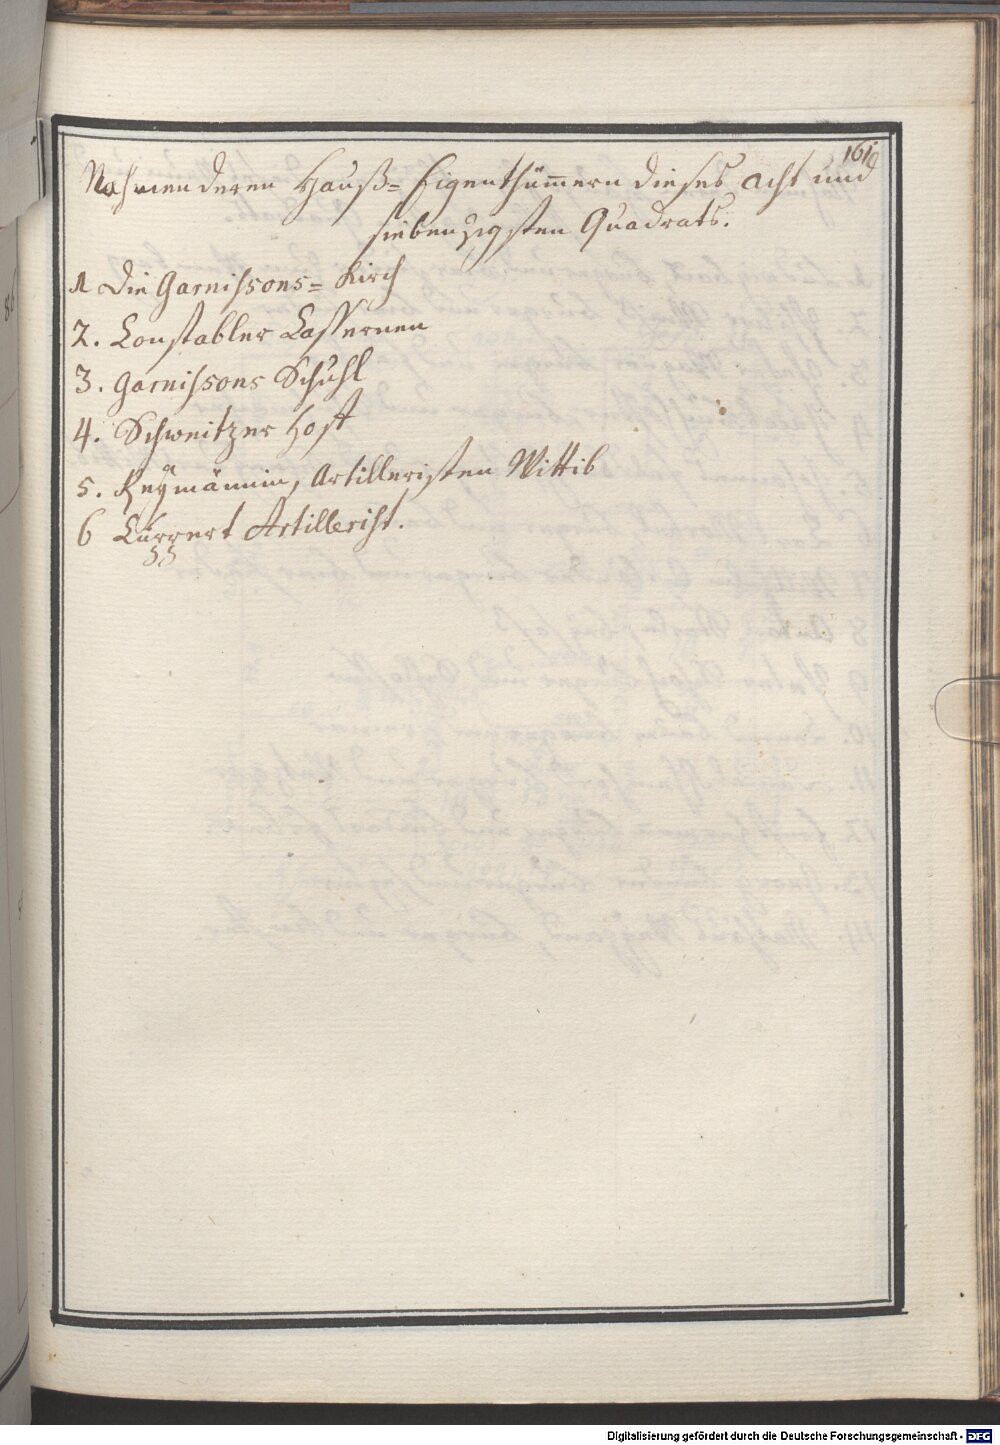 161
Nahmen deren Hauß= Eigenthümmern dieses acht und
siebenzigsten Quadrats.
1 Die Garnisons= Kirch
2. Constabler Cassernen
3. Garnisons Schuhl
4. Schweitzer Hoff
5. Reymännin, Artilleristen Wittib
6 Artillerist.
Digitalisierung gefördert durch die Deutsche Forschungsgemeinschaft - DFG